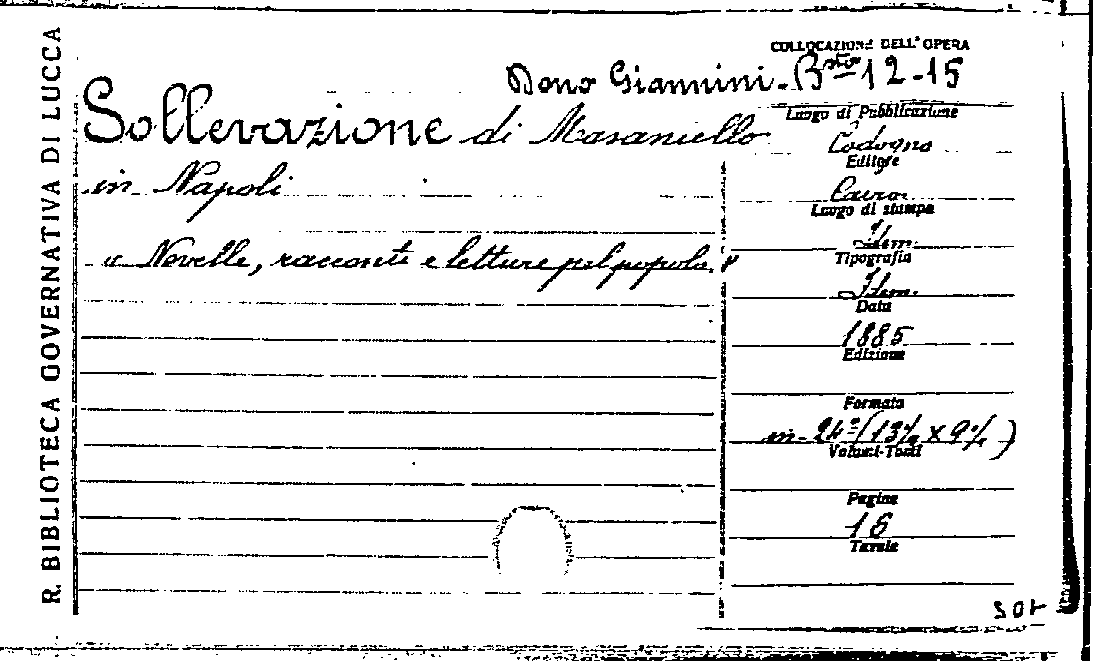 R. BIBLIOTECA GOVERNATIVA DI LUCCA
COLLOCAZIONE DELL' OPERA
Dono Giannini - Bsta 12-15
Sollevazione di Masaniello
in Napoli
" Novelle, racconti e letture pel popolo. "
Luogo di Pubblicazione
Codogno
Editore
Cairo
Luogo di stampa
Idem
Tipografia
Idem.
Data
1885
Edizione
Formato
in-24° (13% x 9%)
Volumi-Tomi
Pagine
16
Tavole